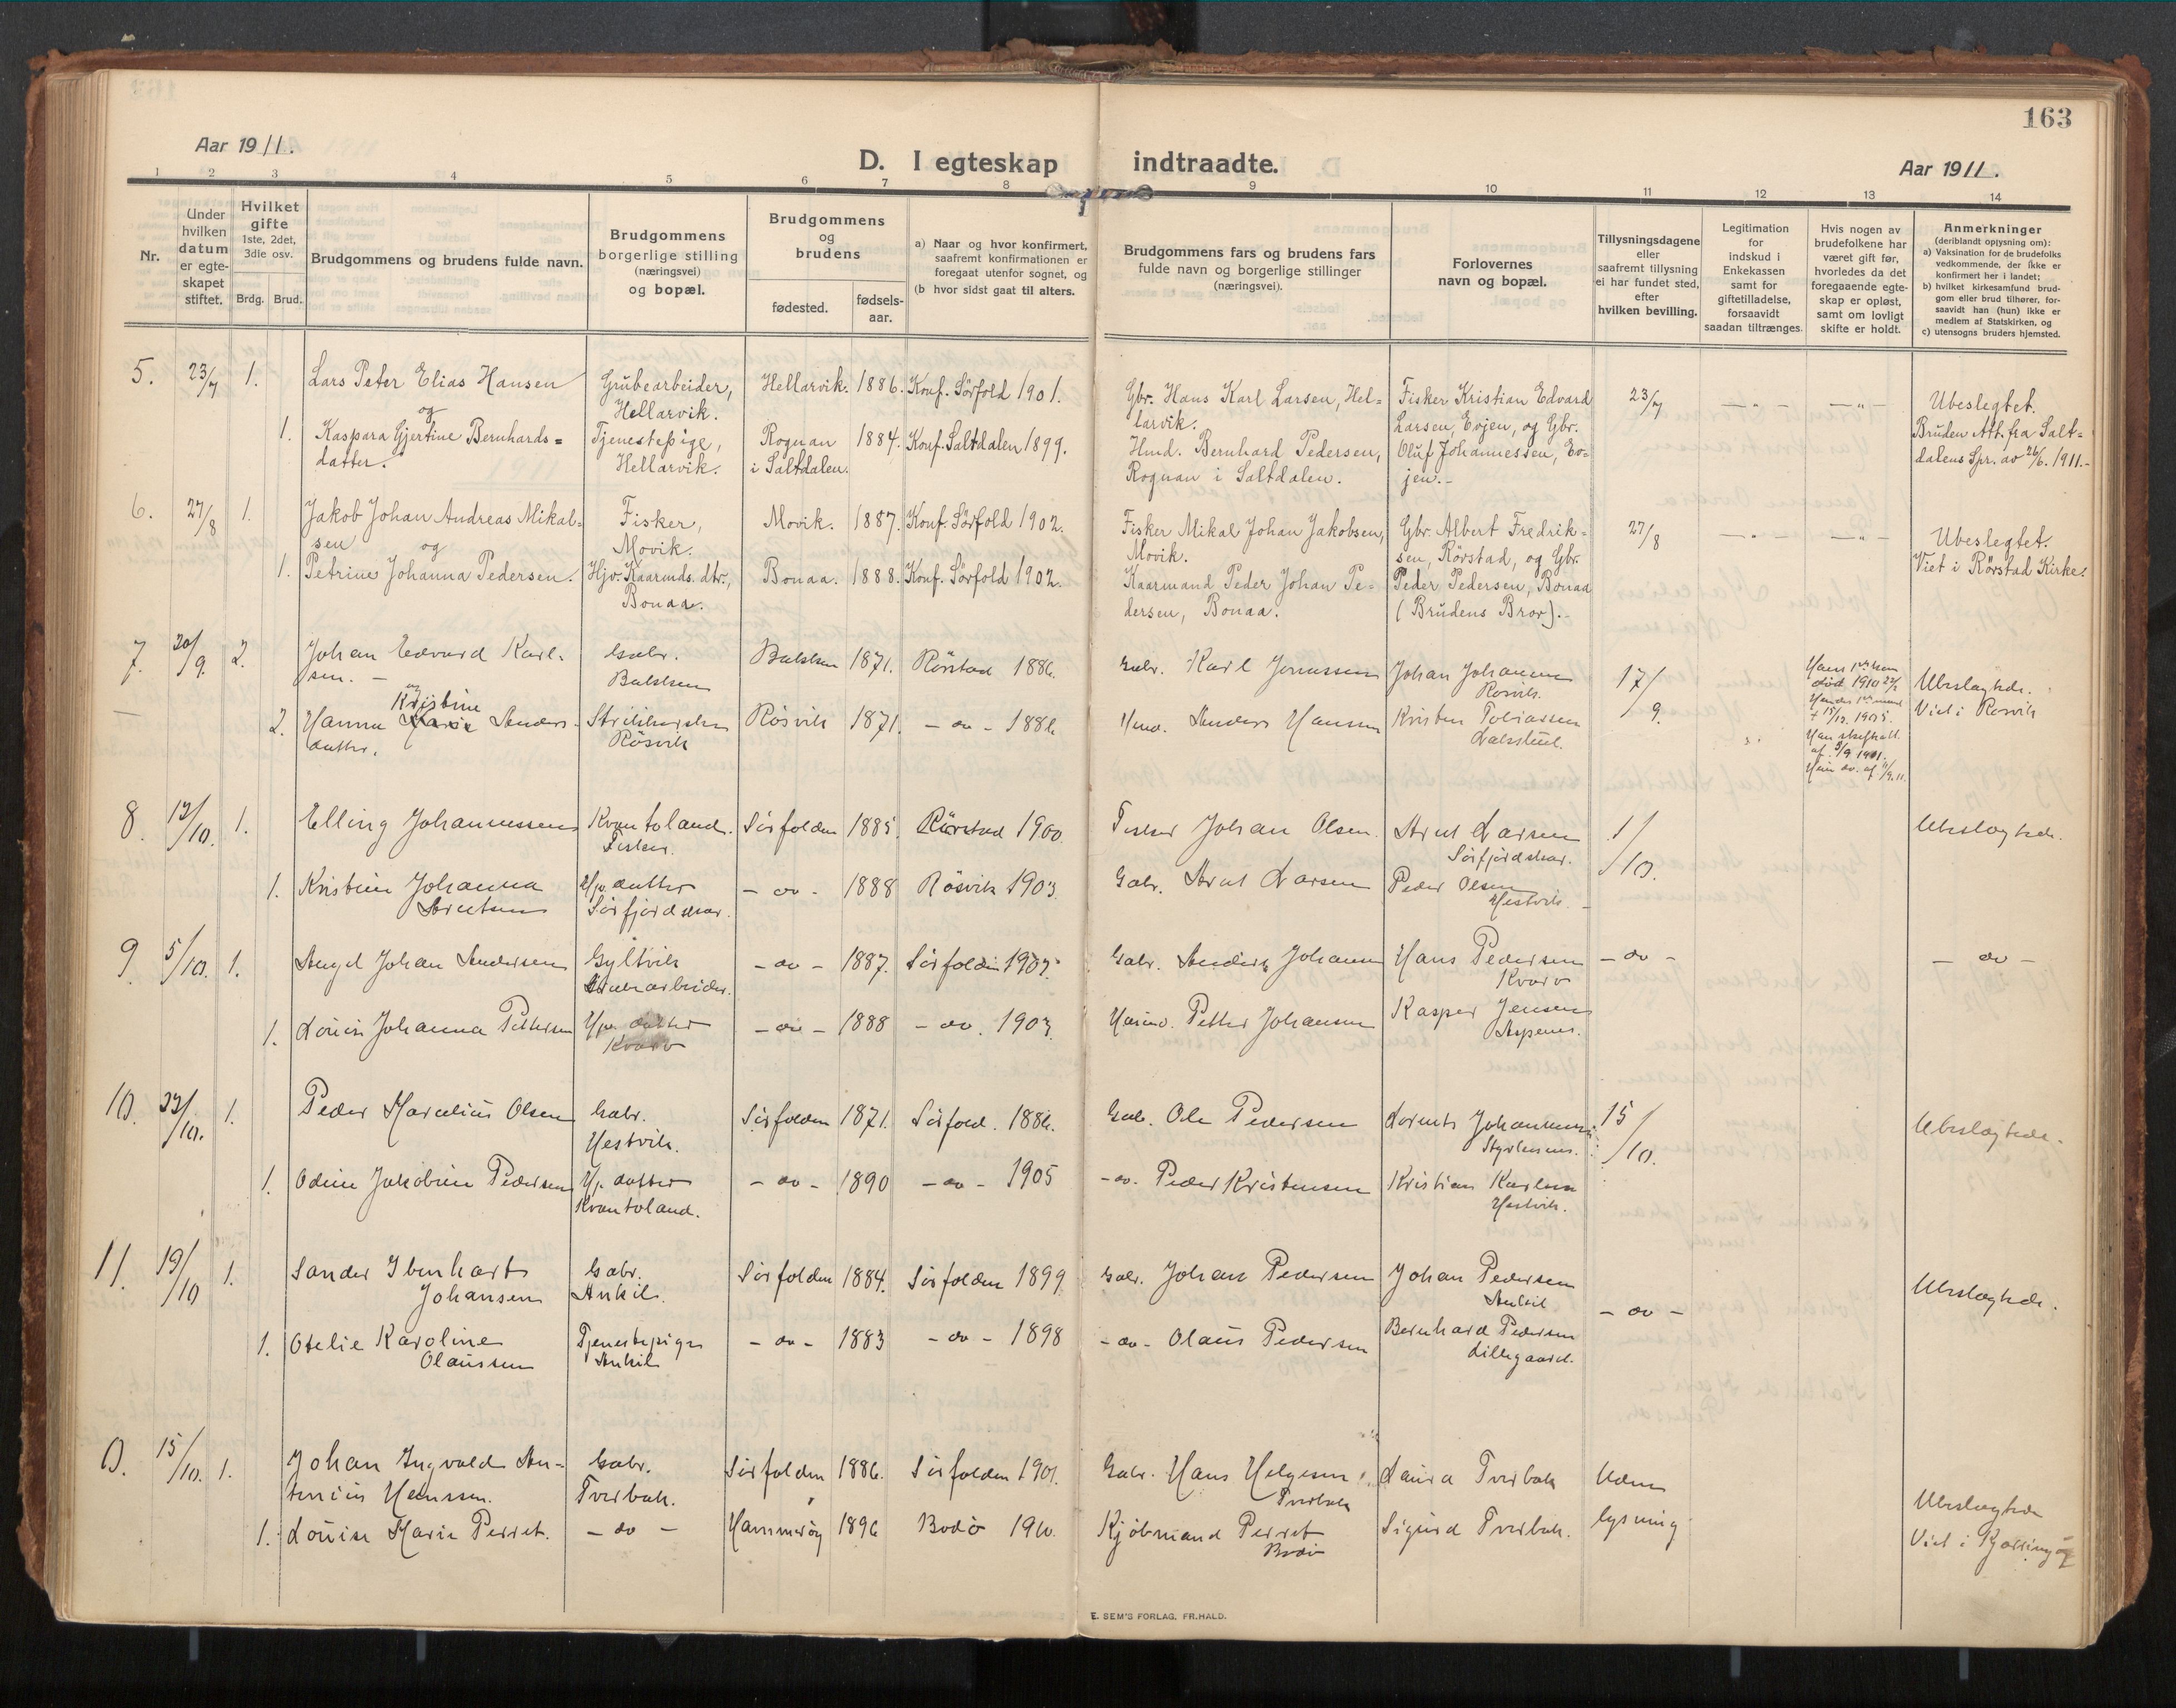 163
Aar 1911.
D. I egteskap indtraadte.
Aar 1911.
1 2 3 4 5 6 7 8 9 10 11 12 13 14
Nr.
Under hvilken datum er egte-skapet stiftet.
Hvilket gifte 1ste, 2det, 3dle osv.
Brdg. Brud.
Brudgommens og brudens fulde navn.
Brudgommens borgerlige stilling (næringsvei) og bopæl.
Brudgommens og brudens
fødested.
fødsels-aar.
a) Naar og hvor konfirmert, saafremt konfirmationen er foregaat utenfor sognet, og
(b hvor sidst gaat til alters.
Brudgommens fars og brudens fars fulde navn og borgerlige stillinger (næringsvei).
Forlovernes navn og bopæl.
Tillysningsdagene eller saafremt tillysning ei har fundet sted, efter hvilken bevilling.
Legitimation for indskud i Enkekassen samt for giftetilladelse, forsaavidt saadan tiltrænges.
Hvis nogen av brudefolkene har været gift før, hvorledes da det foregaaende egte-skap er opløst, samt om lovligt skifte er holdt.
Anmerkninger
(deriblandt opjysning om):
a) Vaksination for de brudefolks vedkommende, der ikke er konfirmert her i landet;
b) hvilket kirkesamfund brud-gom eller brud tilhører, for-saavidt han (hun) ikke er medlem af Statskirken, og
c) utensogns bruders hjemsted.
5. 23/7 1. Lars Peter Elias Hansen Grubearbeider, Hellarvik. 1886. Konf. Sørfold 1901. Gbr. Hans Karl Larsen, Hel- Fisker Kristian Edvard 23/7 — " — — " — Ubeslegtet.
og Hellarvik. larvik. Larsen, Evjen, og Gbr. Bruden Att. fra Salt-
1. Kaspara Gjertine Bernhards= Tjenestepige, Rognan 1884. Konf. Saltdalen 1899. Hmd. Bernhard Pedersen, Oluf Johannessen, Ev- dalens Spr. av 26/6. 1911.-
datter. Hellarvik. i Saltdalen. Rognan i Saltdalen. jen.-
6. 27/8 1. Jakob Johan Andreas Mikal= Fisker, Movik. 1887. Konf. Sørfold 1902. Fisker Mikal Johan Jakobsen, Gbr. Albert Fredrik= 27/8 — " — — " — Ubeslegtet.
sen og Movik. Movik. sen, Rørstad, og Gbr. Viet i Rørstad Kirke.
1. Petrine Johanna Pedersen. Hjv. Kaarmds. dtr., Bonaa. 1888. Konf. Sørfold 1902. Kaarmand Peder Johan Pe- Peder Pedersen, Bonaa
Bonaa. dersen, Bonaa. (Brudens Bror).-
7. 20/9. 2. Johan Edvard Karl- Gabr. 1871. Rørstad 1886. Gabr. Karl Jonassen Johan Johansen 17/9. død 1910 Ubeslægtede.
sen. — Rosvik. Viet i Rosvik
Kristine
2. Hanna Anders- Røsvik 1871. — do — 1886 Anders Hansen Kristen Tobiassen
datter. Røsvik
8. 12/10. 1. Elling Johannessen Kvantoland. Sørfolden 1885. Rørstad 1900 Fisker Johan Olsen. Arnt Larsen 1/10. Ubeslægtede.
Fisker. Sørfjordskar.
1. Kristine Johanna Hjv. datter — do — 1888 Røsvik 1903. Gabr. Arnt Larsen Peder Olsen
Arntsen Sørfjordskar. Hestvik. —
9. 5/10. 1. Johan Andersen Gyltvik — do — 1887. Sørfolden Gabr. Anders Johansen Hans Pedersen — do — — do —
Kvarv
1. Lovise Johanna Pettersen Hjv. datter — do — 1888 — do. 1903. Petter Johansen Kasper Jensen
Kvarv Aspenes.
10. 22/10. 1. Peder Marcelius Olsen Gabr. Sørfolden 1871. Sørfold. 1886. Gab. Ole Pedersen Lornts Johannessen 15/10. Ubeslægtede.
Hestvik.
1. Odine Jakobine Pedersen Hjv. datter — do — 1890 — do — 1905 — do. Peder Kristensen Kristian Karlsen
Kvantoland. Hestvik.
11. 19/10 1. Sander Ibenhart Gabr. Sørfolden 1884. Sørfolden 1899 Gabr. Johan Pedersen Johan Pedersen — do — Ubeslægtede.
Johansen Ankil. Ankil
1. Otelie Karoline Tjenestepige — do — 1883 — do — 1898 — do — Olaus Pedersen Bernhard Pedersen
Olaussen Ankil Lillegaard.
15/10. 1. Johan Ingvald An- Gabr. Sørfolden 1886. Sørfolden 1901. Gabr. Hans Helgesen Laura Tverbak Uden
tonius Hanssen. Tverbak. Tverbak
1. Lovise Marie Perret. — do — Hammerøy 1896 Bodø 1910. Kjøbmand Perret Sigurd Tverbak. lysning Ubeslægtede
Bodø Viet i Kjærringøy
E. SEM'S FORLAG, FR.HALD.